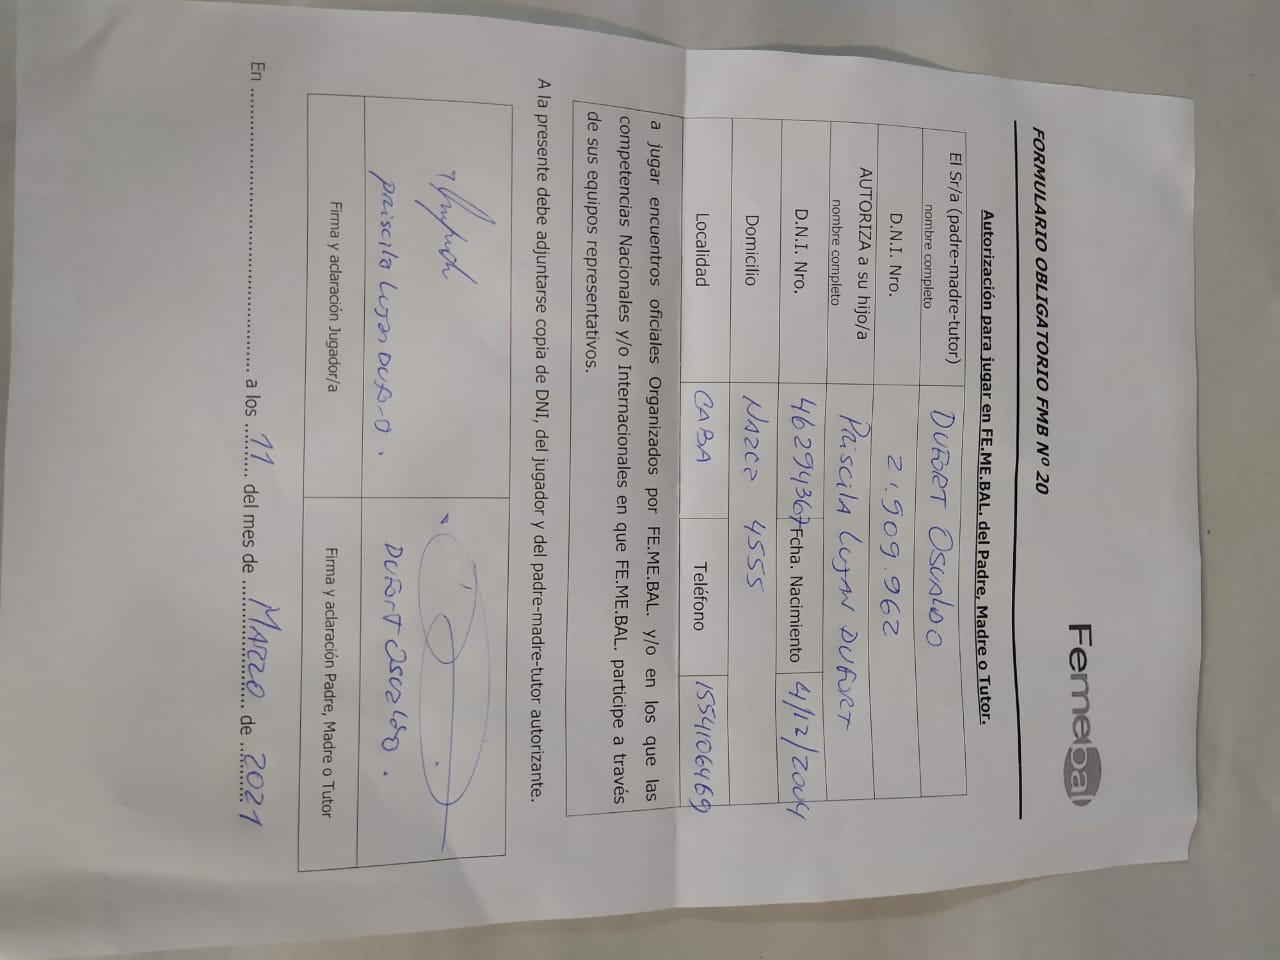 Femebal
FORMULARIO OBLIGATORIO FMB Nº 20
Autorización para jugar en FE.ME.BAL. del Padre, Madre o Tutor.
El Sr/a (padre-madre-tutor) nombre completo DUFORT OSVALDO
D.N.I. Nro. 21.909.962
AUTORIZA a su hijo/a nombre completo PRISCILA LUJAN DUFORT
D.N.I. Nro. 46294367 Fcha. Nacimiento 4/12/2004
Domicilio NAZCA 4555
Localidad CABA Teléfono 1554106469
a jugar encuentros oficiales Organizados por FE.ME.BAL. y/o en los que las
competencias Nacionales y/o Internacionales en que FE.ME.BAL. participe a través
de sus equipos representativos.
A la presente debe adjuntarse copia de DNI, del jugador y del padre-madre-tutor autorizante.
Priscila Lujan DUFORT. DUFORT OSVALDO.
Firma y aclaración Jugador/a Firma y aclaración Padre, Madre o Tutor
En .......................................................... a los 11 del mes de MARZO de 2021